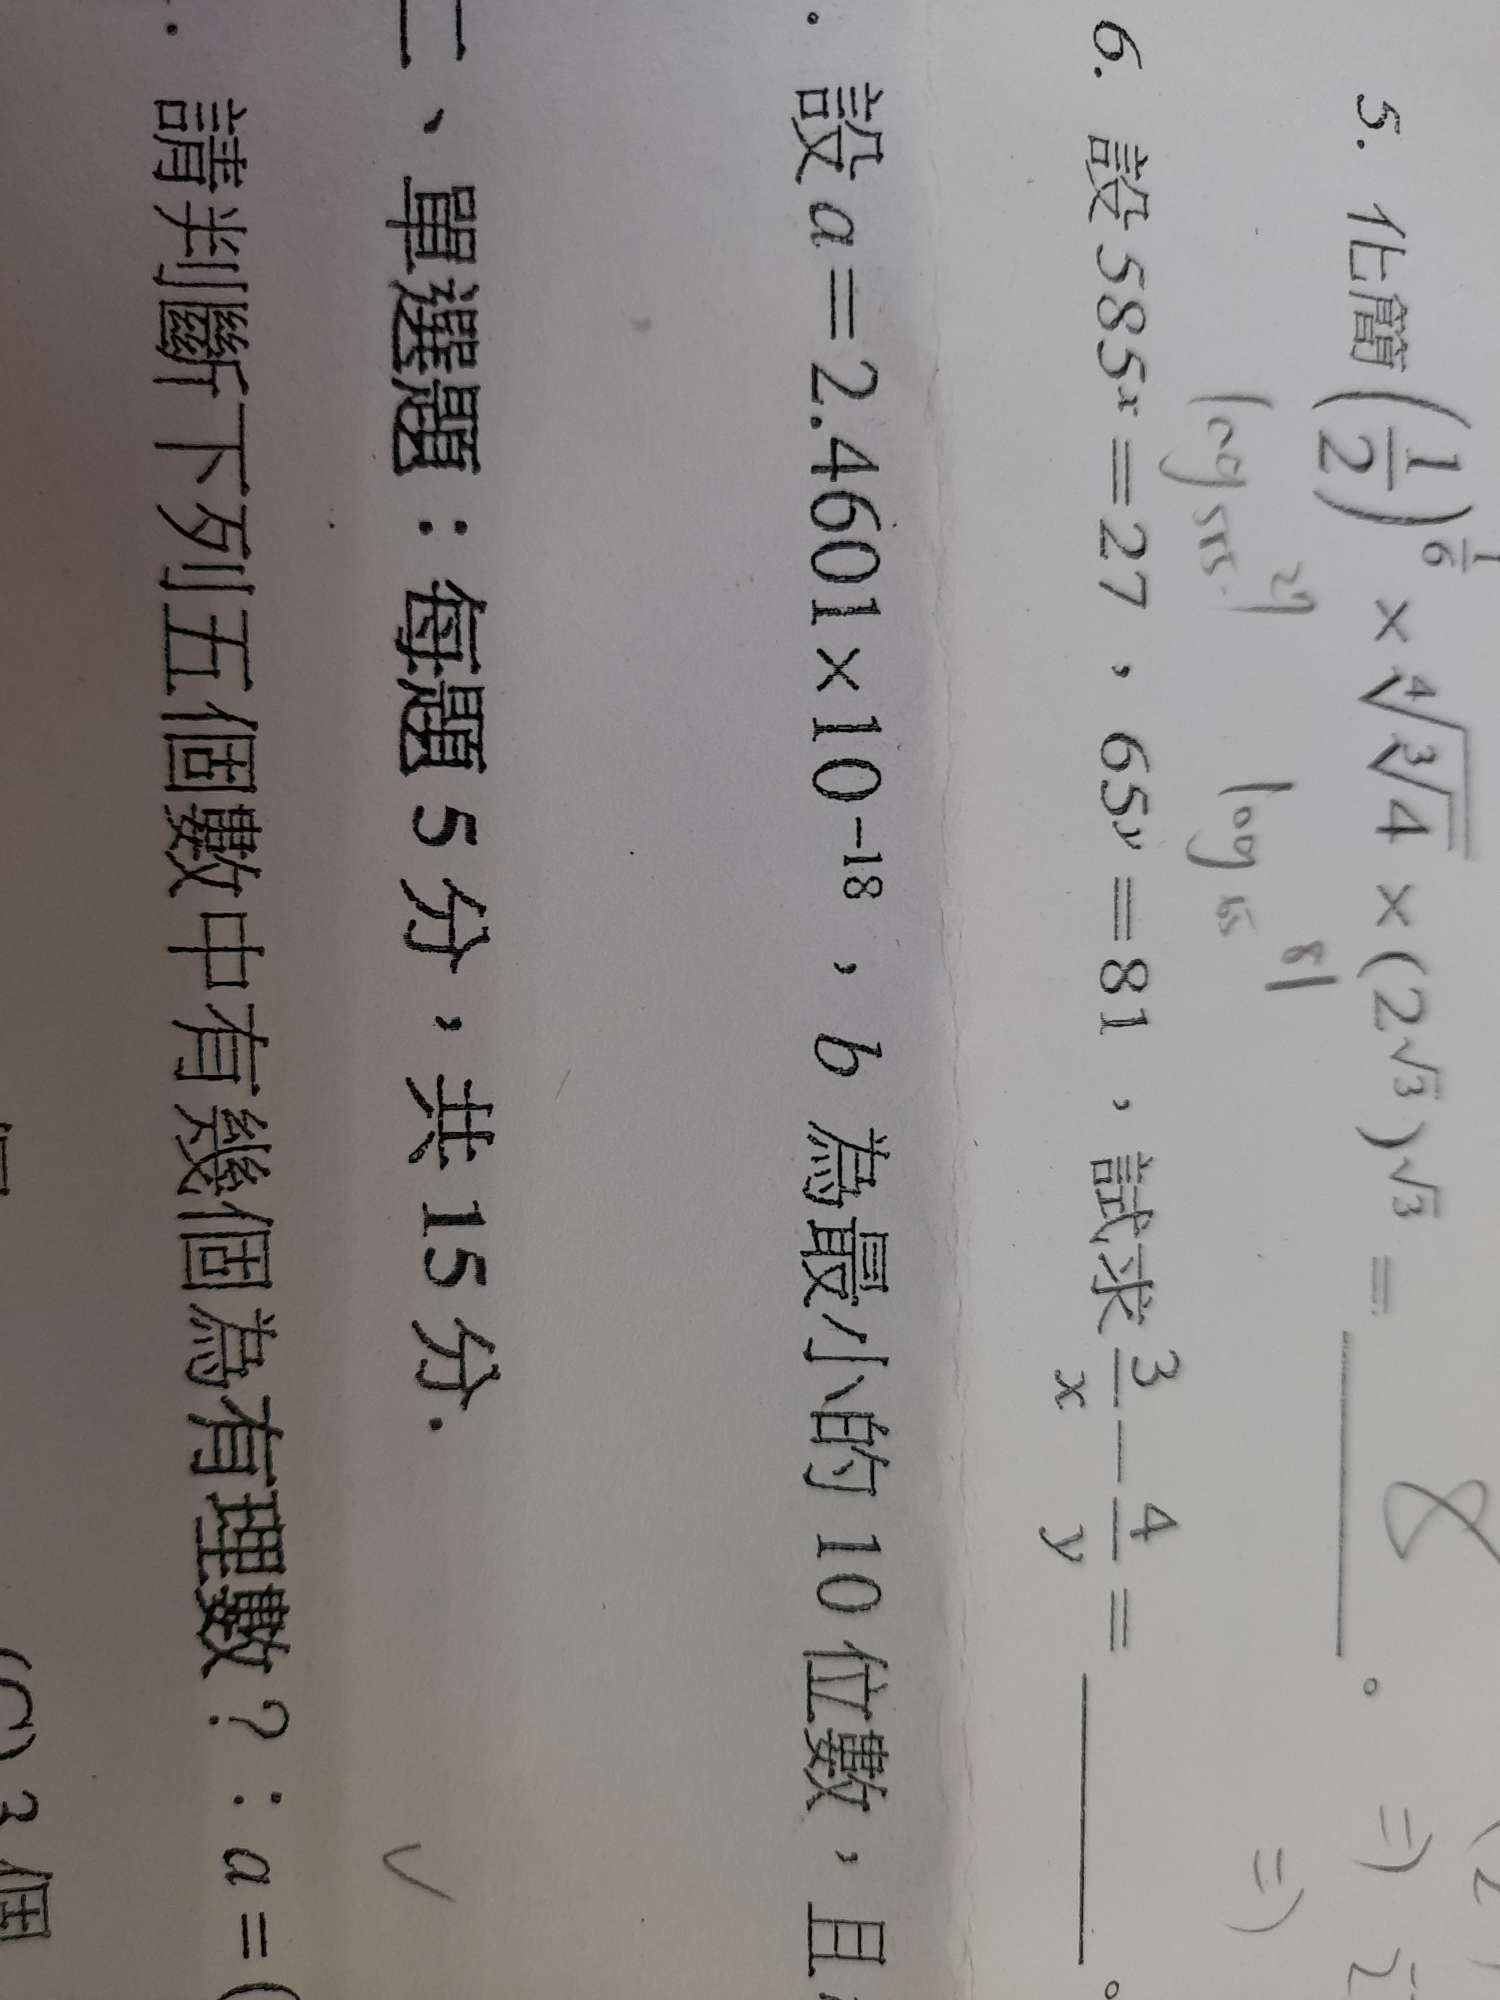 5. 化簡(1/2)^(1/6) × ⁴√(³√4) × (2^√3)^√3 = 8 。
6. 設 585^x = 27,65^y = 81,試求 3/x − 4/y = 。
log 585 27 log 65 81
. 設 a = 2.4601×10^−18,b 為最小的 10 位數,且
二、單選題:每題 5 分,共 15 分.
. 請判斷下列五個數中有幾個為有理數?:a = (
(C) 3 個